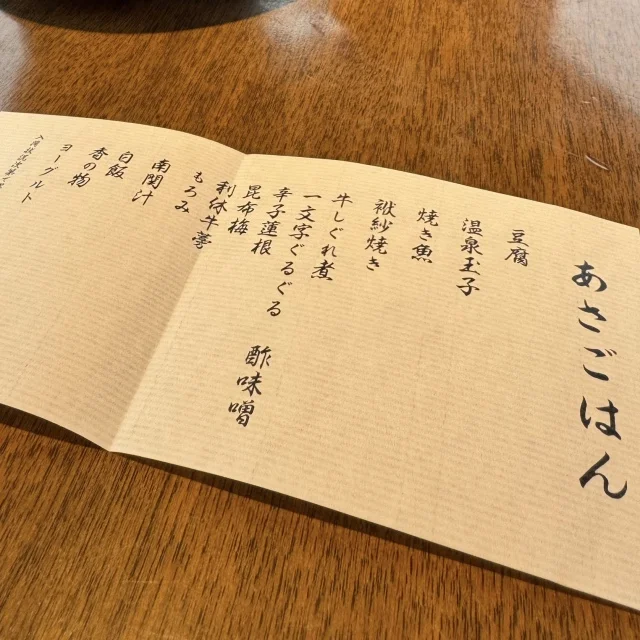 あさごはん
豆腐
温泉玉子
焼き魚
袱紗焼き
牛しぐれ煮
一文字ぐるぐる 酢味噌
辛子蓮根
昆布梅
利休牛蒡
もろみ
南関汁
白飯
香の物
ヨーグルト